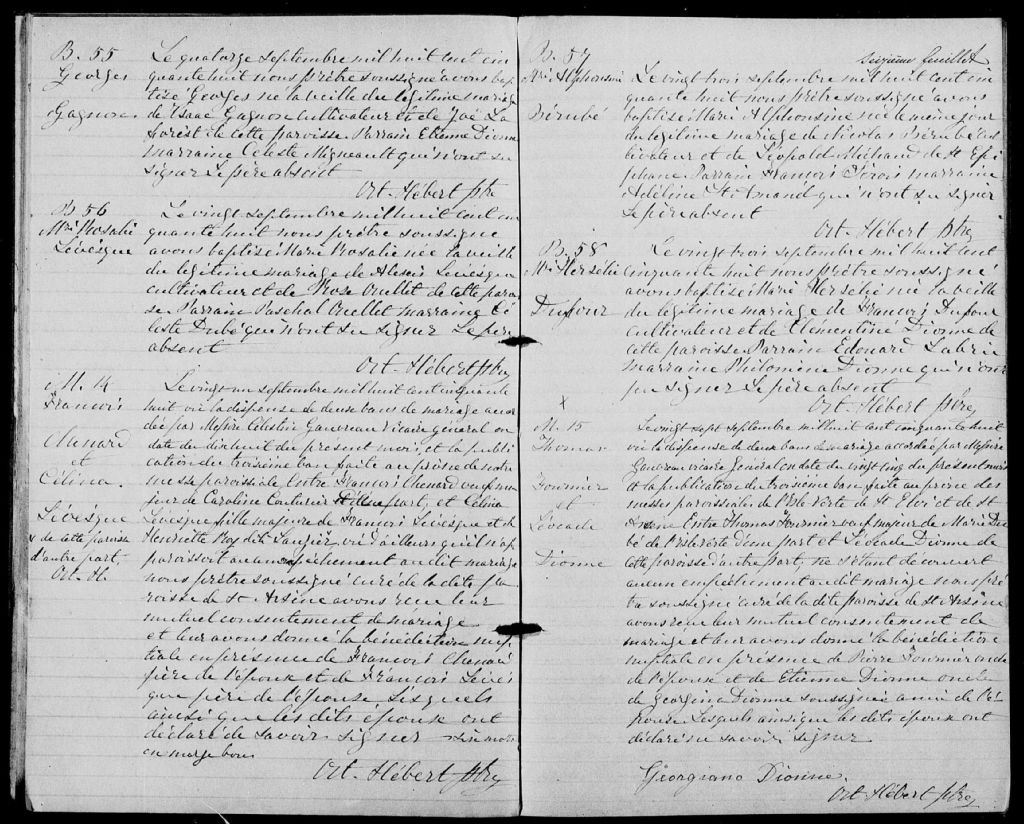 B. 55
Georges
Gagnon
Le quatorze septembre mil huit cent cin
quante huit nous prêtre soussigné avons bap
tisé Georges né la veille du légitime mariage
de Isaac Gagnon cultivateur et de Zoé La
forest de cette paroisse Parrain Etienne Dionne
marraine Celeste Migneault qui n'ont su
signer Le père absent
Ort. Hébert ptre
B. 56
Mie Rosalie
Lévésque
Le vingt septembre mil huit cent cin
quante huit nous prêtre soussigné
avons baptisé Marie Rosalie née la veille
du légitime mariage de Alexis Levesque
cultivateur et de Rose Ouellet de cette parois
se Parrain Paschal Ouellet marraine Cé
leste Dubé qui n'ont su signer Le père
absent
Ort. Hébert ptre
M. 14
Francois
Chenard
et
Célina
Lévésque
x de cette paroisse
d'autre part,
Ort. H.
Le vingt un septembre mil huit cent cinquante
huit vu la dispense de deux bans de mariage accor
dée par Messire Célestin Gauvreau Vicaire général en
date du dix huit du présent mois, et la publi
cation du troisième ban faite au prône de notre
messe paroissiale Entre Francois Chenard veuf ma
jeur de Caroline Couturier d'une part, et Célina
Lévesque fille majeure de Francois Lévésque et de
Henriette Roy dit Lauzier, vu d'ailleurs qu'il n'ap
paroissoit aucun empêchement au dit mariage
nous prêtre soussigné curé de la dite pa
roisse de St Arsène avons reçu leur
mutuel consentement de mariage
et leur avons donné la bénédiction nup
tiale en présence de Francois Chenard
père de l'époux et de Francois Lévés
que père de l'épouse Lesquels
ainsi que les dits épouse ont
déclaré de savoir signer six mots
en marge bons
Ort. Hébert ptre
Sixième feuillet
B. 57
Mie Alphonsine
Bérubé
Le vingt trois septembre mil huit cent cin
quante huit nous prêtre soussigné avons
baptisé Marie Alphonsine née le même jour
du légitime mariage de Nicolas Bérubé cul
tivateur et de Léopold Michaud de St Epi
phane Parrain Francois Sirois marraine
Adéline St Amand qui n'ont su signer
Le père absent
Ort. Hébert ptre
B. 58
Mie Hersélie
Dufour
Le vingt trois septembre mil huit cent
cinquante huit nous prêtre soussigné
avons baptisé Marie Hersélie née la veille
du légitime mariage de Francois Dufour
cultivateur et de Clémentine Dionne de
cette paroisse Parrain Edouard Labrie
marraine Philomène Dionne qui n'ont
pu signer Le père absent
Ort. Hébert ptre
x
M. 15
Thomas
Fournier
et
Léocade
Dionne
Le vingt sept septembre mil huit cent cinquante huit
vu la dispense de deux bans de mariage accordée par Messire
Gauvreau vicaire général en date du vingt cinq du présent mois
et la publication du troisième ban faite au prône des
messes paroissiales de l'Isle Verte de St Eloi et de St
Arsène Entre Thomas Fournier veuf majeur de Marie Du
bé de l'Isle Verte d'une part et Léocade Dionne de
cette paroisse d'autre part, ne s'étant découvert
aucun empêchement au dit mariage nous prê
tre soussigné curé de la dite paroisse de St Arsène
avons reçu leur mutuel consentement de
mariage et leur avons donné la bénédiction
nuptiale en présence de Pierre Fournier oncle
de l'époux et de Etienne Dionne oncle
de Georgina Dionne soussignée amie de l'é
pouse Lesquels ainsi que les dits épouse ont
déclaré ne savoir signer
Georgiana Dionne.
Ort. Hébert ptre